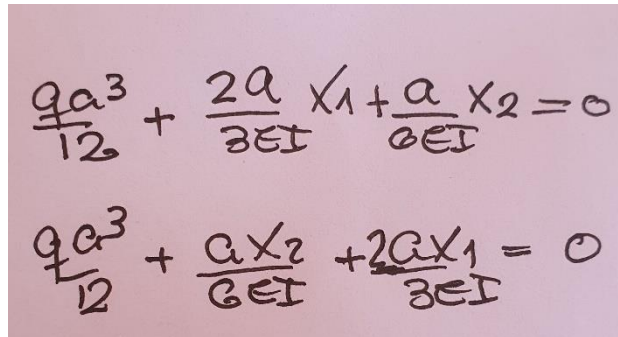 qa³/12 + 2a/3EI X1 + a/6EI X2 = 0
qa³/12 + aX2/6EI + 2aX1/3EI = 0